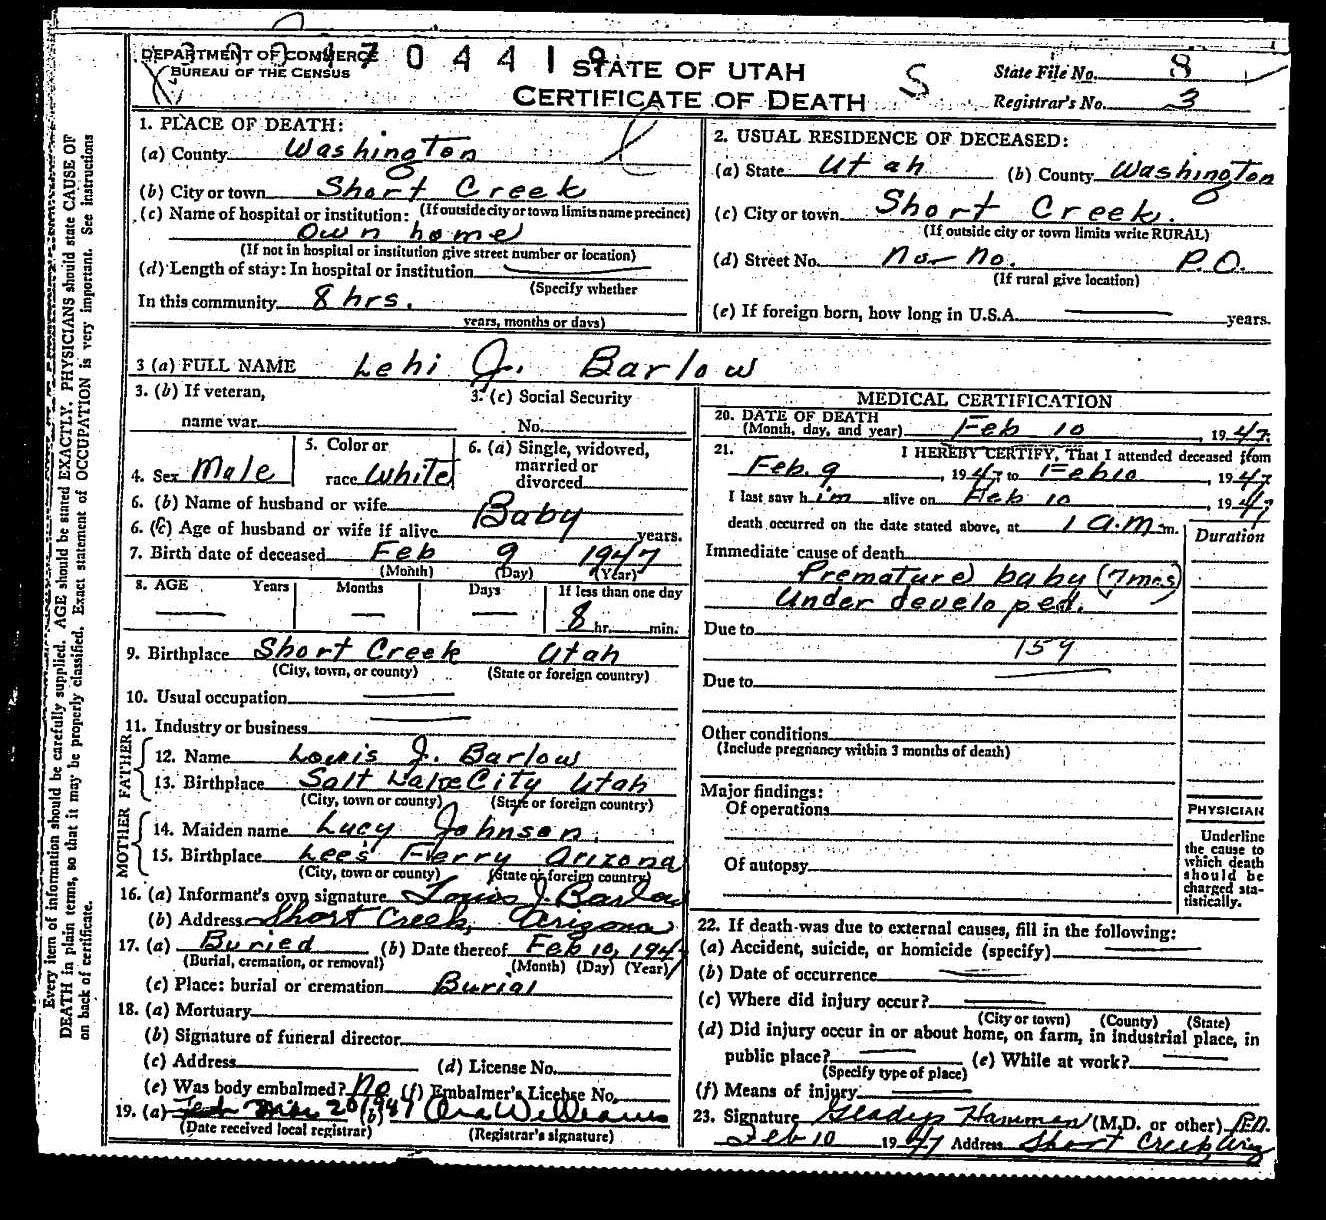 DEPARTMENT OF COMMERCE
BUREAU OF THE CENSUS
4 7 0 4 4 1 9
STATE OF UTAH
CERTIFICATE OF DEATH
S
State File No. 8
Registrar's No. 3
1. PLACE OF DEATH:
(a) County Washington
(b) City or town Short Creek
(If outside city or town limits name precinct)
(c) Name of hospital or institution:
own home
(If not in hospital or institution give street number or location)
(d) Length of stay: In hospital or institution
(Specify whether
In this community 8 hrs.
years, months or days)
2. USUAL RESIDENCE OF DECEASED:
(a) State Utah (b) County Washington
(c) City or town Short Creek.
(If outside city or town limits write RURAL)
(d) Street No. nor no. P.O.
(If rural give location)
(e) If foreign born, how long in U.S.A. years.
3 (a) FULL NAME Lehi J. Barlow
3. (b) If veteran,
name war
3. (c) Social Security
No.
4. Sex Male
5. Color or
race White
6. (a) Single, widowed,
married or
divorced
6. (b) Name of husband or wife
Baby
6. (c) Age of husband or wife if alive years.
7. Birth date of deceased Feb 9 1947
(Month) (Day) (Year)
8. AGE Years Months Days If less than one day
8 hr. min.
9. Birthplace Short Creek Utah
(City, town, or county) (State or foreign country)
10. Usual occupation
11. Industry or business
FATHER
12. Name Louis J. Barlow
13. Birthplace Salt Lake City Utah
(City, town or county) (State or foreign country)
MOTHER
14. Maiden name Lucy Johnson.
15. Birthplace Lee's Ferry Arizona
(City, town or county) (State or foreign country)
16. (a) Informant's own signature Louis J. Barlow
(b) Address Short Creek, Arizona
17. (a) Buried (b) Date thereof Feb 10, 1947
(Burial, cremation, or removal) (Month) (Day) (Year)
(c) Place: burial or cremation Burial
18. (a) Mortuary
(b) Signature of funeral director
(c) Address (d) License No.
(e) Was body embalmed? No (f) Embalmer's License No.
19. (a) 20 1947 (b) Ora Williams
(Date received local registrar) (Registrar's signature)
MEDICAL CERTIFICATION
20. DATE OF DEATH
(Month, day, and year) Feb 10, 1947.
21. I HEREBY CERTIFY, That I attended deceased from
Feb. 9, 1947 to Feb 10, 1947
I last saw him alive on Feb 10, 1947
death occurred on the date stated above, at 1 a.m. m.
Duration
Immediate cause of death
Premature baby (7mos)
Under developed.
Due to
159
Due to
Other conditions
(Include pregnancy within 3 months of death)
Major findings:
Of operations
Of autopsy
PHYSICIAN
Underline
the cause to
which death
should be
charged sta-
tistically.
22. If death was due to external causes, fill in the following:
(a) Accident, suicide, or homicide (specify)
(b) Date of occurrence
(c) Where did injury occur?
(City or town) (County) (State)
(d) Did injury occur in or about home, on farm, in industrial place, in
public place? (e) While at work?
(Specify type of place)
(f) Means of injury
23. Signature Gladys Hammon (M.D. or other)
Feb 10 1947 Address Short Creek, Ariz
Every item of information should be carefully supplied. AGE should be stated EXACTLY. PHYSICIANS should state CAUSE OF
DEATH in plain terms, so that it may be properly classified. Exact statement of OCCUPATION is very important. See instructions
on back of certificate.